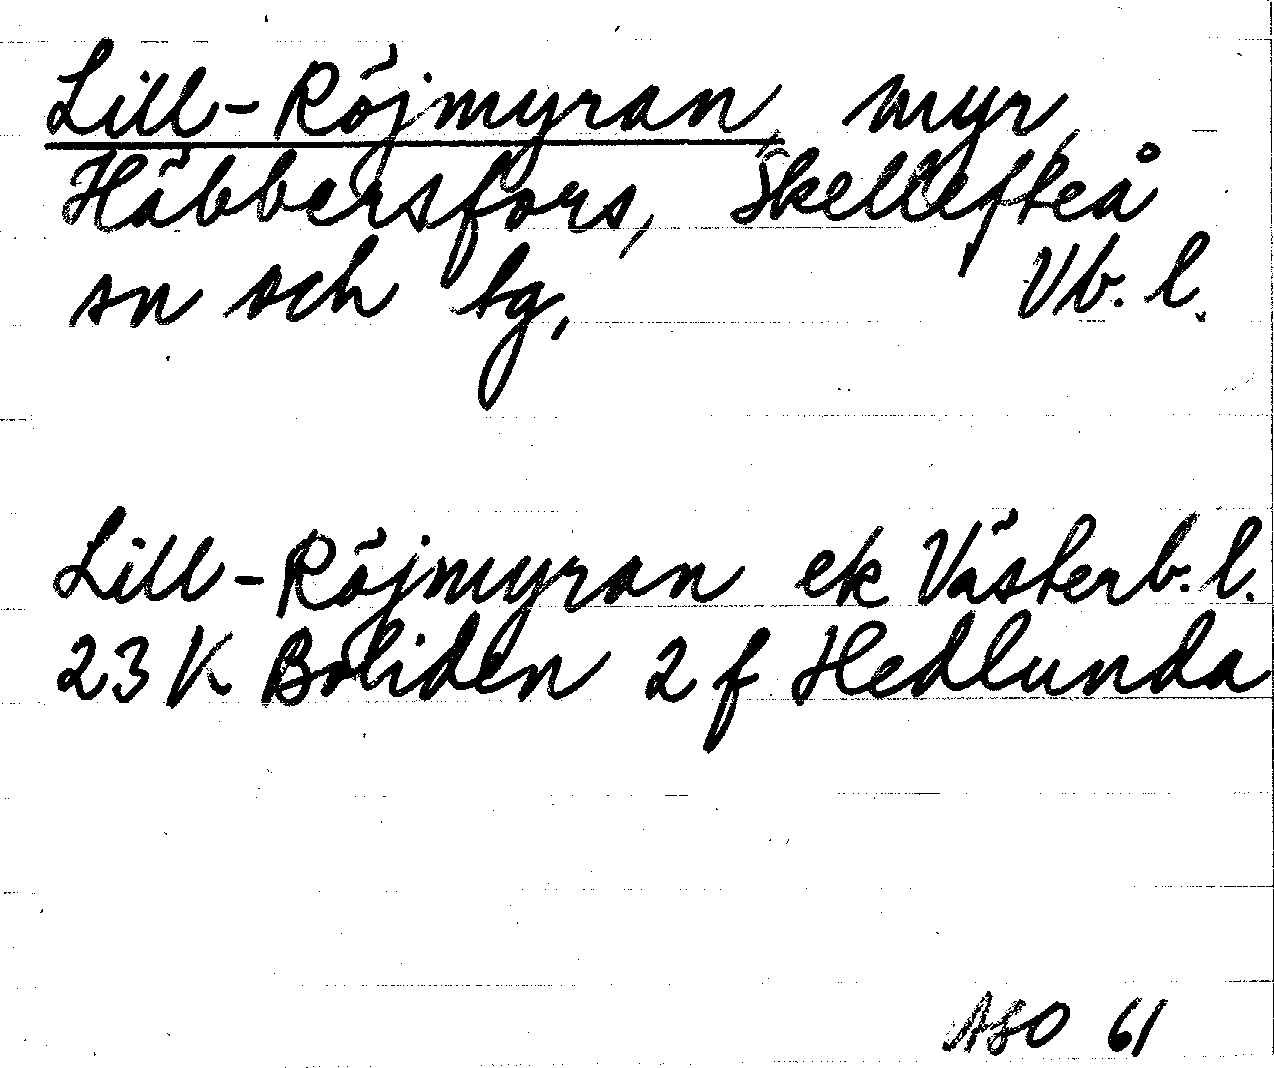 Lill-Röjmyran, myr,
Häbbersfors, Skellefteå
sn och tg, Vb. l.
Lill-Röjmyran ek Västerb. l.
23 K Boliden 2 f Hedlunda
ASO 61